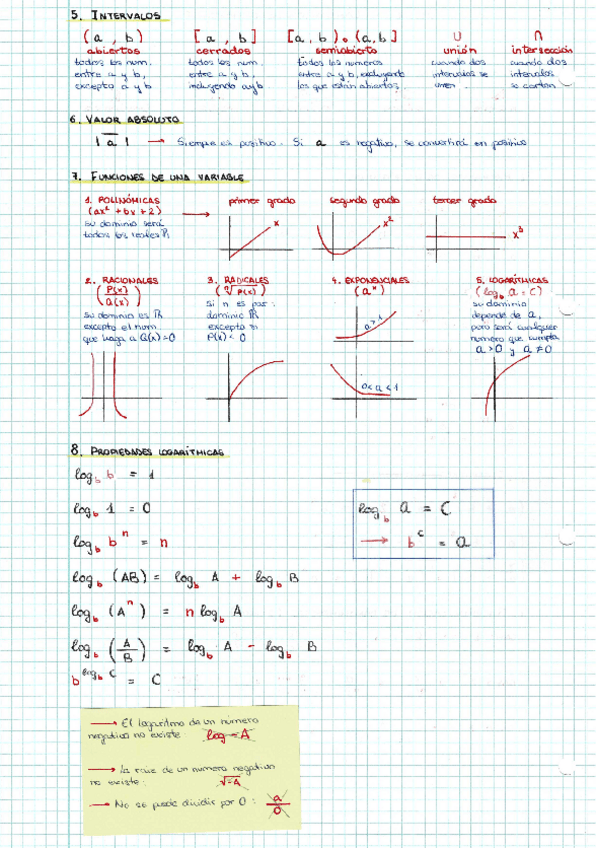 5. INTERVALOS
(a, b) [a, b] [a, b) o (a, b] U ∩
abiertos cerrados semiabierto unión intersección
todos los num. todos los num. todos los números cuando dos cuando dos
entre a y b, entre a y b, entre a y b, excluyendo intervalos se intervalos
excepto a y b incluyendo a y b los que están abiertos. unen se cortan
6. VALOR ABSOLUTO
|a| → Siempre en positivo. Si a es negativo, se convertirá en positivo
7. FUNCIONES DE UNA VARIABLE
1. POLINÓMICAS primer grado segundo grado tercer grado
(ax² + bx + 2) →
su dominio será
todos los reales ℝ
x x² x³
2. RACIONALES 3. RADICALES 4. EXPONENCIALES 5. LOGARÍTMICAS
(P(x)/Q(x)) (ⁿ√P(x)) (aˣ) (log_b a = C)
su dominio es ℝ Si n es par: su dominio
excepto el num. dominio ℝ depende de a,
que haga a Q(x)=0 excepto si pero será cualquier
P(x) < 0 número que cumpla
a > 0 y a ≠ 0
a > 1
0 < a < 1
8. PROPIEDADES LOGARÍTMICAS
log_b b = 1
log_b 1 = 0
log_b bⁿ = n
log_b (AB) = log_b A + log_b B
log_b (Aⁿ) = n log_b A
log_b (A/B) = log_b A - log_b B
b^(log_b C) = C
log_b a = C
→ b^c = a
→ El logaritmo de un número
negativo no existe log -A
→ la raíz de un numero negativo
no existe: √-A
→ No se puede dividir por 0: a/0